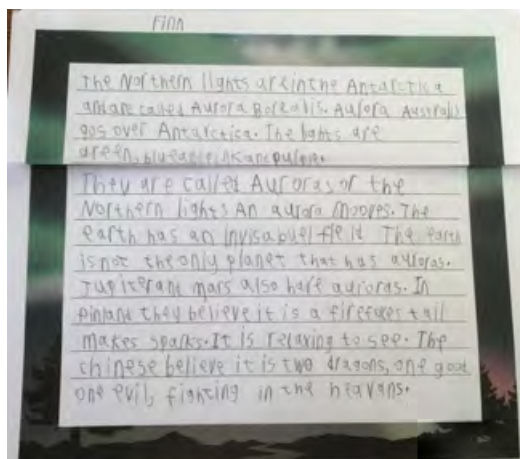 Finn
The Northern lights are in the Antarctis a
and are called Aurora Borealis. Aurora Australis
gos over Antarctica. The lights are
green, blue and pink and purple.
They are called Auroras or the
Northern lights An aurora mooves. The
earth has an invisabuel field The earth
is not the only planet that has auroras.
Jupiter and mars also have auroras. In
Finland they believe it is a firefoxes tail
makes sparks. It is relaxing to see. The
chinese believe it is two dragons, one good
one evil, fighting in the heavans.